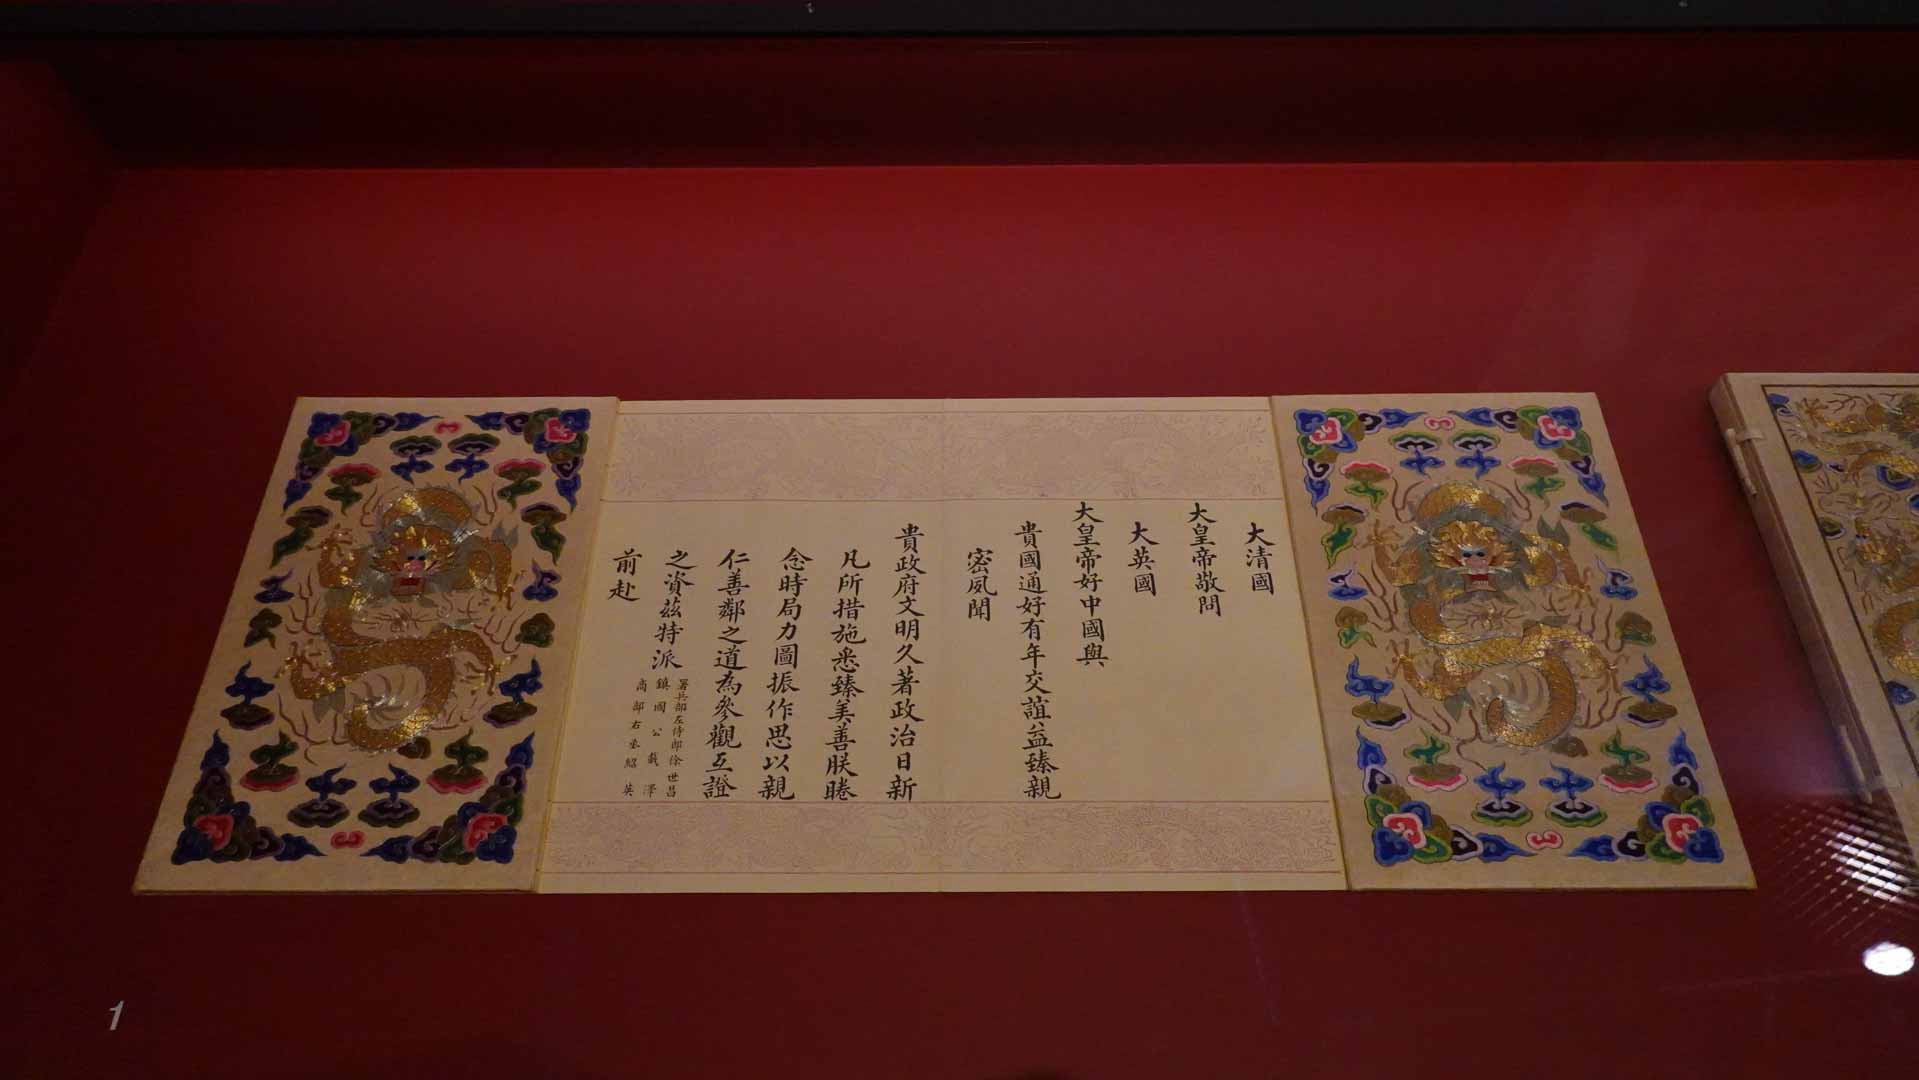 大清國
大皇帝敬問
大英國
大皇帝好中國與
貴國通好有年交誼益臻親
密夙聞
貴政府文明久著政治日新
凡所措施悉臻美善朕睠
念時局力圖振作思以親
仁善鄰之道為參觀互證
之資茲特派
署兵部左侍郎徐世昌
鎮國公載澤
商部右丞紹英
前赴
1